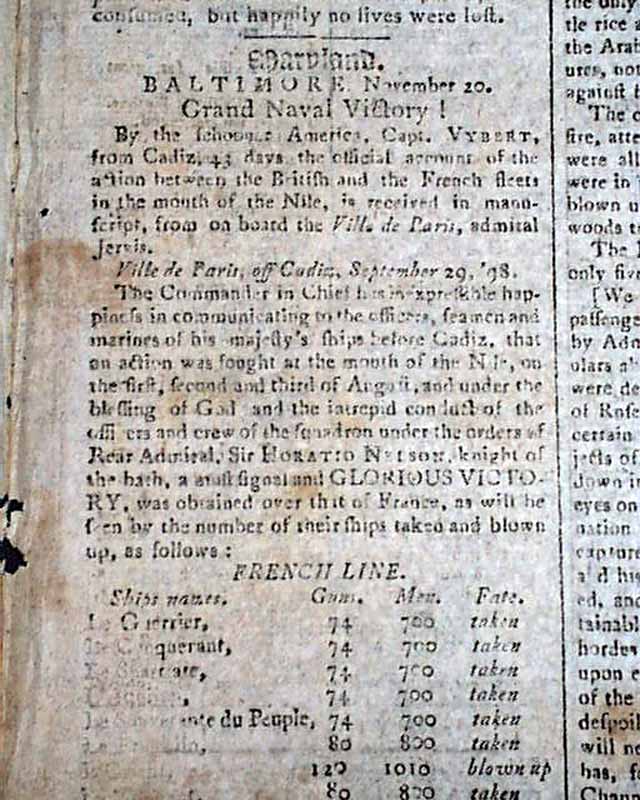 consumed, but happily no lives were lost.
Maryland.
BALTIMORE, November 20.
Grand Naval Victory!
By the schooner America, Capt. VYBERT,
from Cadiz, 43 days, the official account of the
action between the British and the French fleets
in the mouth of the Nile, is received in manu-
script, from on board the Ville de Paris, admiral
Jervis.
Ville de Paris, off Cadiz, September 29, '98.
The Commander in Chief has inexpressible hap-
piness in communicating to the officers, seamen and
marines of his majesty's ships before Cadiz, that
an action was fought at the mouth of the Nile, on
the first, second and third of August, and under the
blessing of God and the intrepid conduct of the
officers and crew of the squadron under the orders of
Rear Admiral, Sir HORATIO NELSON, knight of
the bath, a most signal and GLORIOUS VICTO-
RY, was obtained over that of France, as will be
seen by the number of their ships taked and blown
up, as follows:
FRENCH LINE.
Ships names. Guns. Men. Fate.
Le Guerrier, 74 700 taken
Le Conquerant, 74 700 taken
Le 74 700 taken
74 700 taken
Le du Peuple, 74 700 taken
80 800 taken
120 1010 blown up
80 800 taken
the only
tle rice a
the Arab
ures, not
against
The
fire, atte
were all
were in
blown u
woods t
The
only five
[We
passenge
by Adm
olars a
were de
of Rose
certain
jects of
down in
eyes on
nation
capture
and his
ed, and
tainabl
hordes
upon e
of the
despoil
will ne
has, fo
Chann